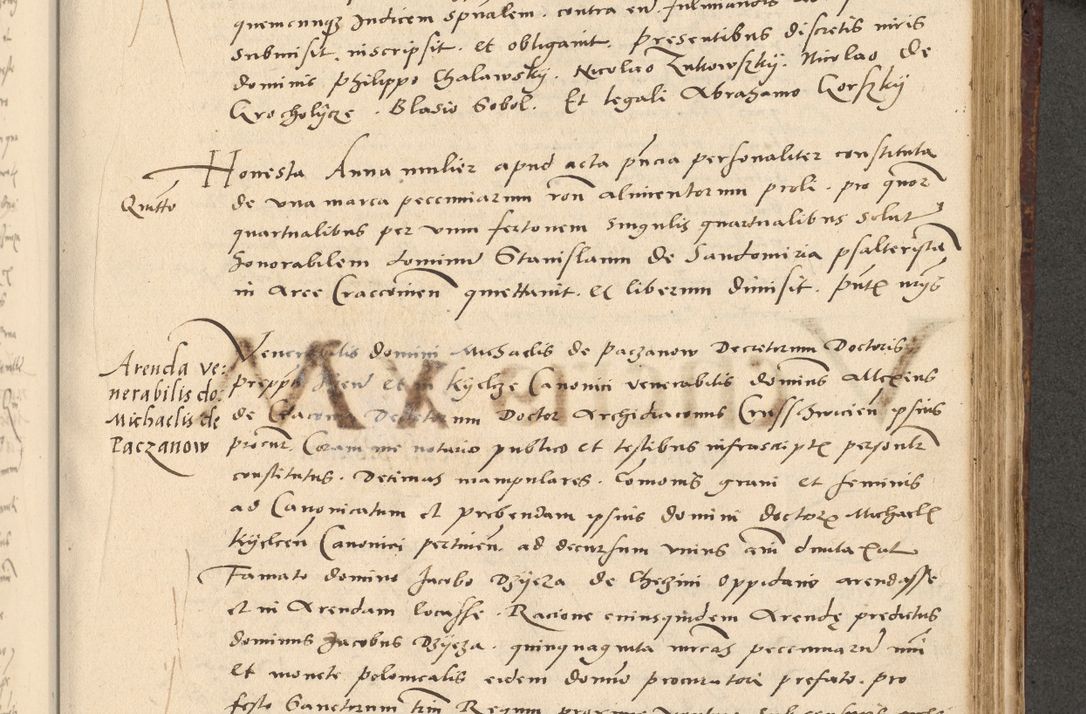 quemcunque Judicem spualem contra eum fulminandis
submisit, inscripsit et obligavit. Presentibus discretis viris
dominis Philippo Chalawsky, Nicolao Zukowszky, Nicolao de
Grocholycze, Blasio Sobol. Et legali Abrahamo Gorszky
Quitto
Honesta Anna mulier apud acta pncia personaliter constituta
de una marca pecuniarum ron alimentorum proli pro quor
quartualibus per unum fertonem singulis quartualibus solut
honorabilem dominum Stanislaum de Sandomiria psalteristam
in Arce Cracovien quiettavit et liberum dimisit. Pntx
Arenda ve:
nerabilis do:
Michaelis de
Paczanow
Venerabilis domini Michaelis de Paczanow Decretorum Doctoris
prepti et in Kyelcze Canonici venerabilis dominus Allexius
de Cracovia Decretorum Doctor Archidiaconus Crusshwicien ipsius
procur. Coram me notario publico et testibus infrascriptx personlr
constitutus. Decimas manipulares. Comonis grani et seminis
ad Canonicatum et prebendam ipsius domini doctorx Michaelx
Kyelcen Canonici pertinen. ad decursum unius duntaxat
Famato domino Jacobo Dzyeza de Chezini oppidano arendasse
et in Arendam locasse. Racione cuiusquidem Arende predictus
dominus Jacobus Dzyeza quinquaginta mrcas pecuniarum
et monete polonicalis eidem domino procuratori prefato. pro
festo Sanctorum trm Regum